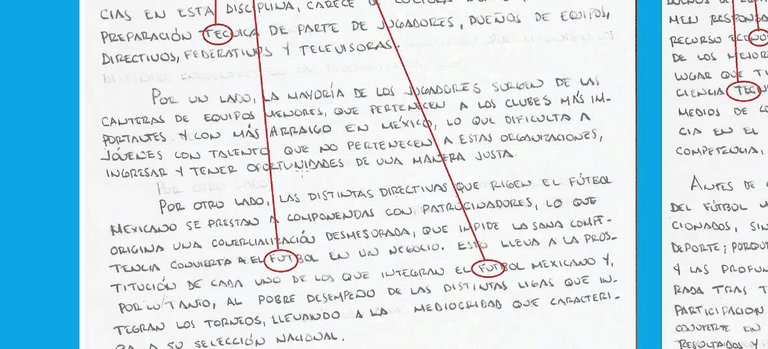 CIAS EN ESTA DISCIPLINA, CARECE
PREPARACIÓN TECNICA DE PARTE DE JUGADORES, DUEÑOS DE EQUIPOS,
DIRECTIVOS, FEDERATIVOS Y TELEVISORAS.
POR UN LADO, LA MAYORÍA DE LOS JUGADORES SURGEN DE LAS
CANTERAS DE EQUIPOS MENORES, QUE PERTENECEN A LOS CLUBES MÁS IM-
PORTANTES Y CON MÁS ARRAIGO EN MÉXICO, LO QUE DIFICULTA A
JÓVENES CON TALENTO QUE NO PERTENECEN A ESTAS ORGANIZACIONES,
INGRESAR Y TENER OPORTUNIDADES DE UNA MANERA JUSTA
POR OTRO LADO, LAS DISTINTAS DIRECTIVAS QUE RIGEN EL FÚTBOL
MEXICANO SE PRESTAN A COMPONENDAS CON PATROCINADORES, LO QUE
ORIGINA UNA COMERCIALIZACIÓN DESMESURADA, QUE IMPIDE LA SANA COMPE-
TENCIA CONVIERTA A EL FUTBOL EN UN NEGOCIO. ESTO LLEVA A LA PROS-
TITUCIÓN DE CADA UNO DE LOS QUE INTEGRAN EL FUTBOL MEXICANO Y,
POR LO TANTO, AL POBRE DESEMPEÑO DE LAS DISTINTAS LIGAS QUE IN-
TEGRAN LOS TORNEOS, LLEVANDO A LA MEDIOCRIDAD QUE CARACTERI-
ZA A SU SELECCIÓN NACIONAL.
MEN RESPONSA
RECURSO ECONO
DE LOS MEJOR
LUGAR QUE TI
CIENCIA TECN
MEDIOS DE CO
CIA EN EL
COMPETENCIA,
ANTES DE
DEL FÚTBOL M
CIONADOS, SIN
DEPORTE; PORQU
Y LAS PROFUN
RADA TRAS T
PARTICIPACION
CONVIERTE EN
RESULTADOS Y